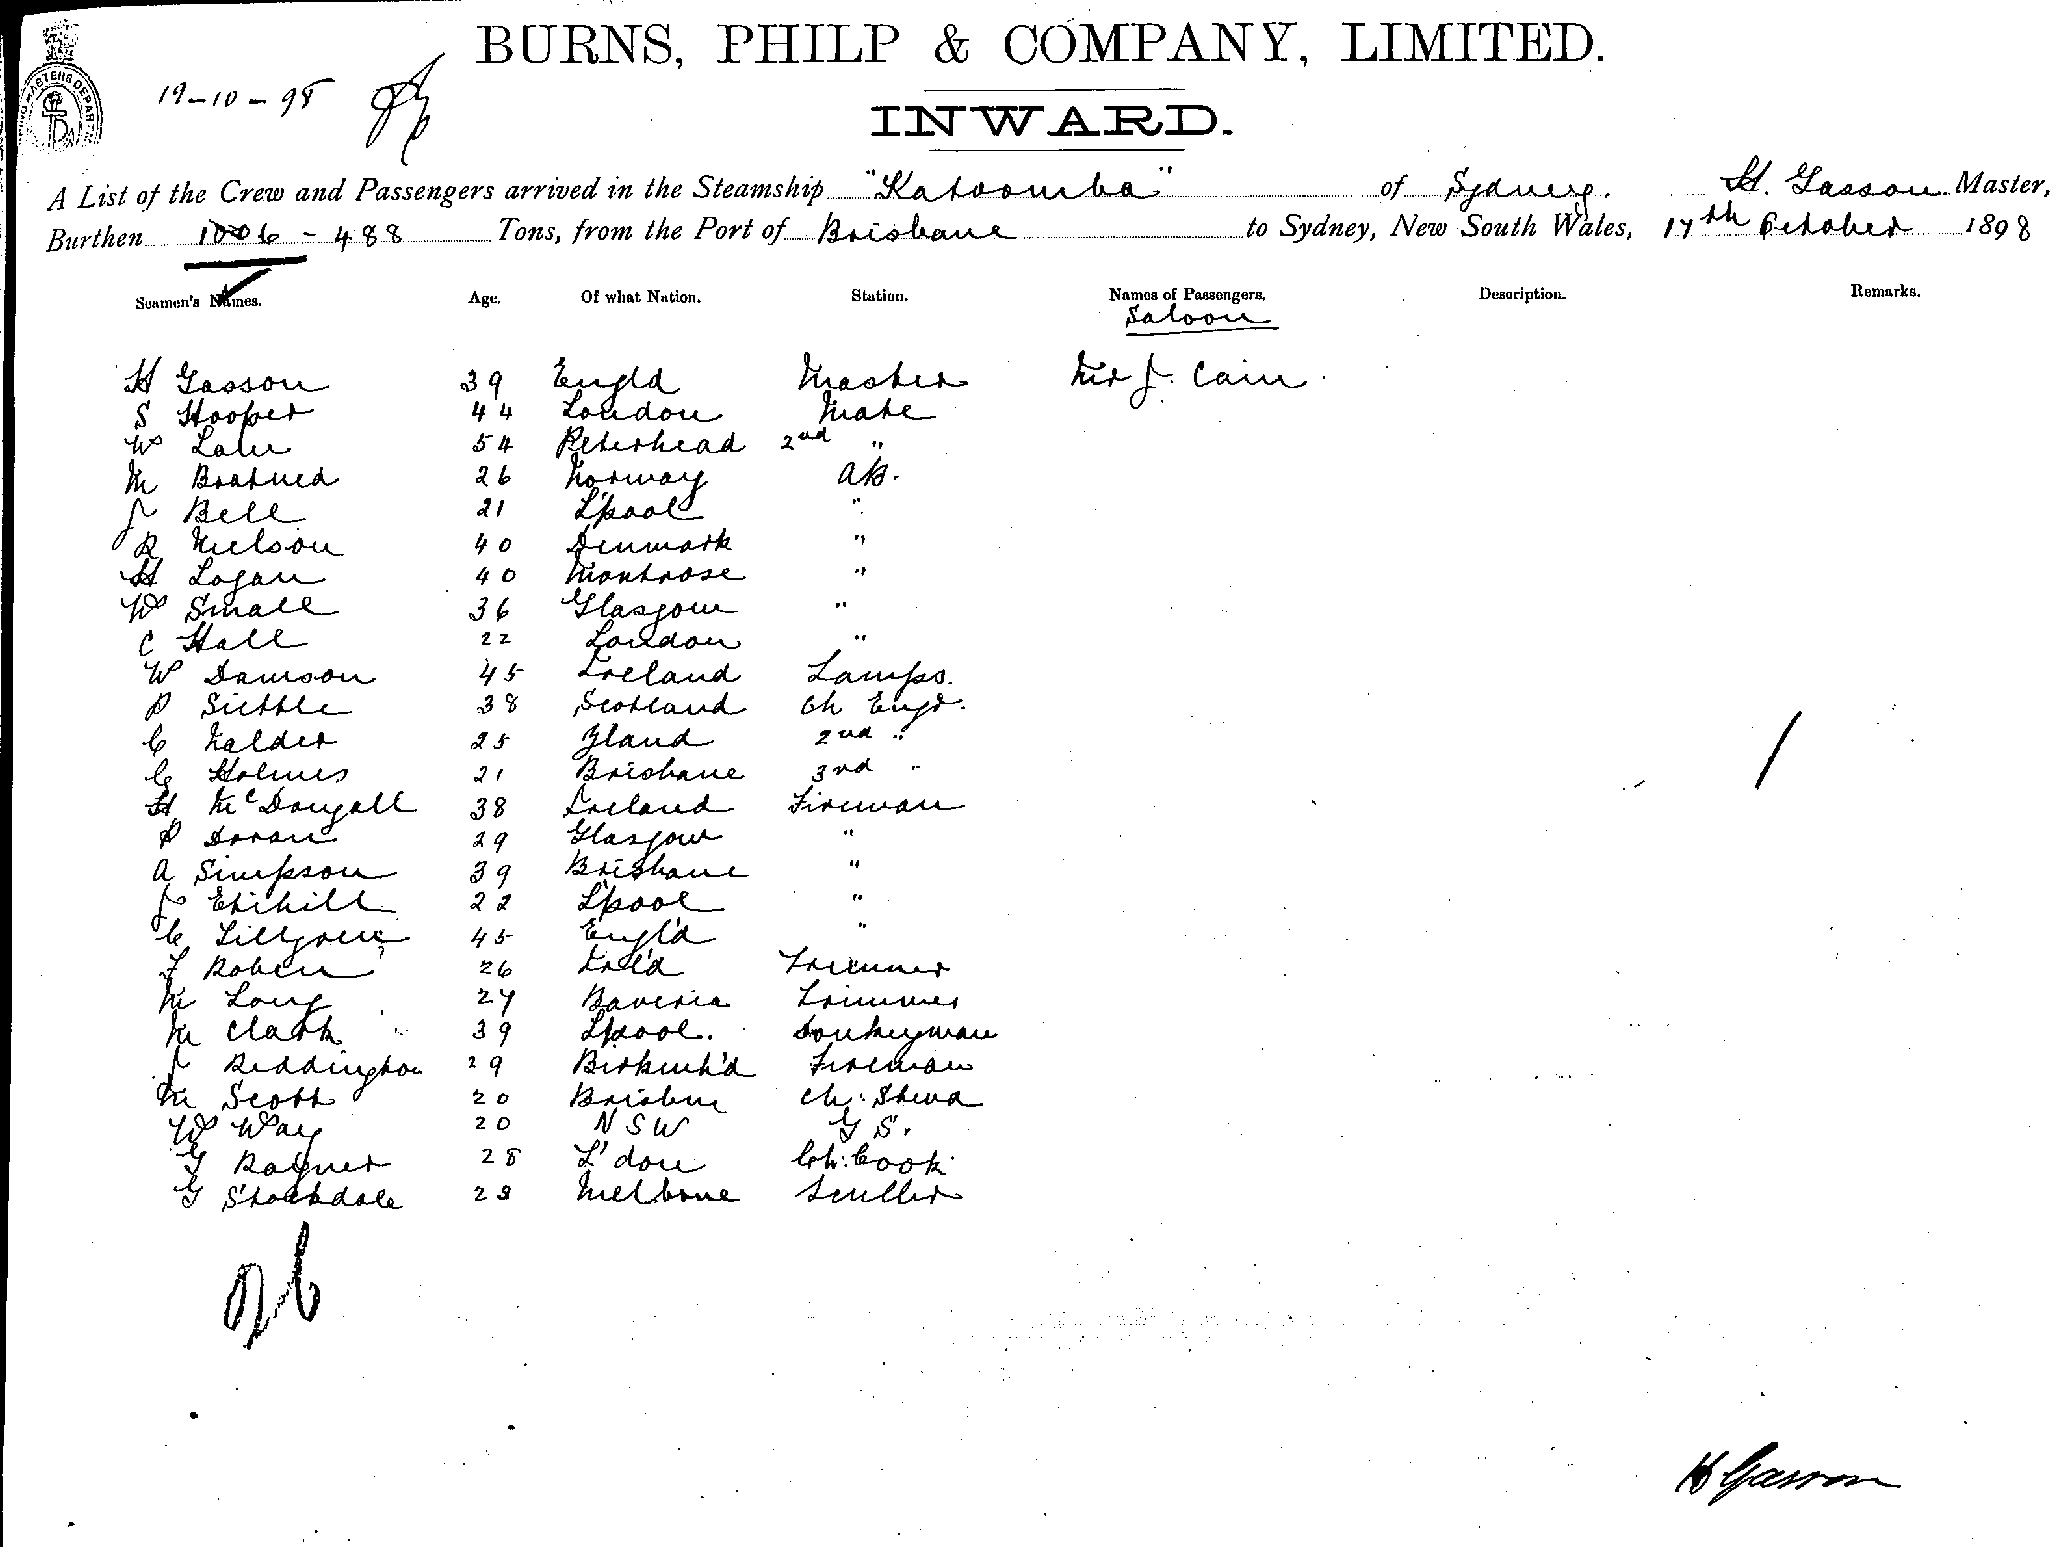 BURNS, PHILP & COMPANY, LIMITED.
19-10-98
INWARD.
A List of the Crew and Passengers arrived in the Steamship "Katoomba" of Sydney. H. Gasson Master,
Burthen 1006 - 488 Tons, from the Port of Brisbane to Sydney, New South Wales, 17th October 1898
Seamen's Names. Age. Of what Nation. Station. Names of Passengers. Description. Remarks.
Saloon
H Gasson 39 Engld Master Mr J. Cain
S Hooper 44 London Mate
W Law 54 Peterhead 2nd "
M 26 Norway AB.
J Bell 21 L'pool "
R Nielson 40 Denmark "
H Logan 40 Montrose "
W Small 36 Glasgow "
C Hall 22 London "
W Dawson 45 Ireland Lamps.
P Sittle 38 Scotland Ch Engr.
C Nalder 25 Zland 2nd "
C Holmes 21 Brisbane 3rd "
H McDougall 38 Ireland Fireman
P Doran 29 Glasgow "
A Simpson 39 Brisbane "
J 22 L'pool "
C 45 Engl'd "
F 26 Irel'd Trimmer
M Long 27 Baveria Trimmer
M Clark 39 Lpool. Donkeyman
J Reddington 29 Birkenh'd Fireman
M Scott 20 Brisbne Ch: Stewd
W Way 20 NSW G S.
G Rayner 28 L'don Ch: Cook
G Stockdale 23 Melborne Sculler
26
H Gasson